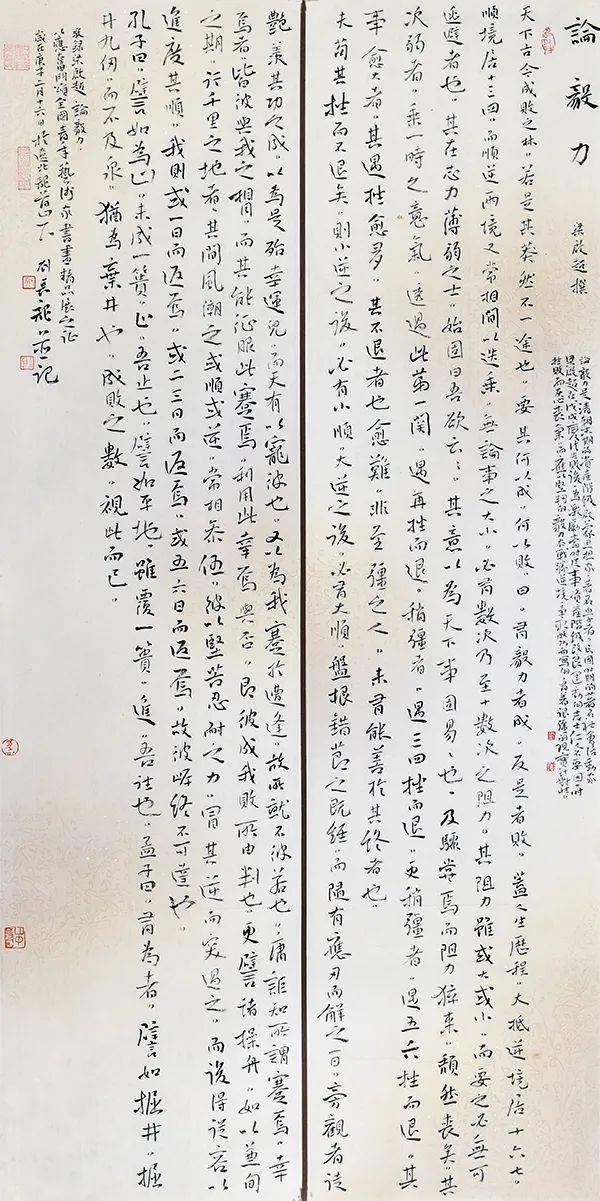 論毅力
梁啟超撰
天下古今成敗之林。若是其莽然不一途也。要其何以成。何以敗。曰。有毅力者成。反是者敗。蓋人生歷程。大抵逆境居十六七。
順境居十三四。而順逆兩境又常相間以迭乘。無論事之大小。必有數次乃至十數次之阻力。其阻力雖或大或小。而要之必無可
逃避者也。其在志力薄弱之士。始固曰吾欲云云。其意以為天下事固易易也。及驟嘗焉而阻力猝來。頹然喪矣。其
次弱者。乘一時之意氣。透過此第一關。遇再挫而退。稍彊者。遇三四挫而退。更稍彊者。遇五六挫而退。其
事愈大者。其遇挫愈多。其不退者也愈難。非至彊之人。未有能善於其終者也。
夫苟其挫而不退矣。則小逆之後。必有小順。大逆之後。必有大順。盤根錯節之既經。而隨有應刃而解之一日。旁觀者徒
艷羨其功之成。以為是殆幸運兒。而天有以寵彼也。又以為我蹇於遭逢。故所就不彼若也。庸詎知所謂蹇焉。幸
焉者。皆彼與我之相同。而其能征服此蹇焉。利用此幸焉與否。即彼成我敗所由判也。更譬諸操舟。如以兼旬
之期。行千里之地者。其間風潮之或順或逆。常相參伍。彼以堅苦忍耐之力。冒其逆而突過之。而後得從容以
進度其順。我則或一日而返焉。或二三日而返焉。或五六日而返焉。故彼岸終不可達也。
孔子曰。譬如為山。未成一簣。止。吾止也。譬如平地。雖覆一簣。進。吾往也。孟子曰。有為者。譬如掘井。掘
井九仞。而不及泉。猶為棄井也。成敗之數。視此而已。
敬錄梁啟超論毅力。
全國青年藝術家書畫精品展之征
歲在庚子二月十六日於遼北龍首山下